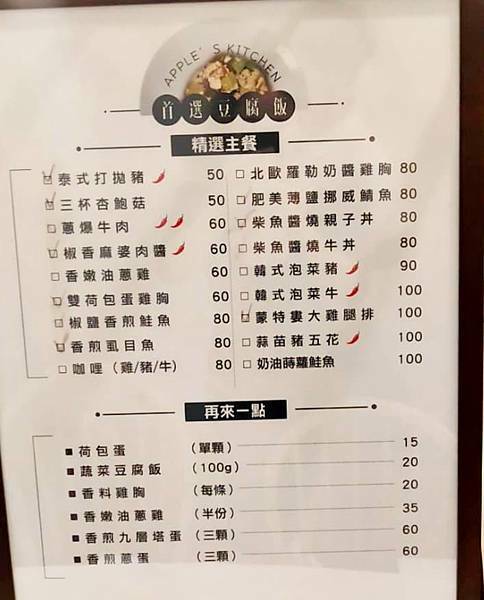 APPLE'S KITCHEN
首選豆腐飯
精選主餐
泰式打拋豬 50
三杯杏鮑菇 50
蔥爆牛肉 60
椒香麻婆肉醬 60
香嫩油蔥雞 60
雙荷包蛋雞胸 60
椒鹽香煎鮭魚 80
香煎虱目魚 80
咖哩（雞/豬/牛） 80
北歐羅勒奶醬雞胸 80
肥美薄鹽挪威鯖魚 80
柴魚醬燒親子丼 80
柴魚醬燒牛丼 80
韓式泡菜豬 90
韓式泡菜牛 100
蒙特婁大雞腿排 100
蒜苗豬五花 100
奶油蒔蘿鮭魚 100
再來一點
荷包蛋 （單顆） 15
蔬菜豆腐飯 （100g） 20
香料雞胸 （每條） 20
香嫩油蔥雞 （半份） 35
香煎九層塔蛋 （三顆） 60
香煎蔥蛋 （三顆） 60